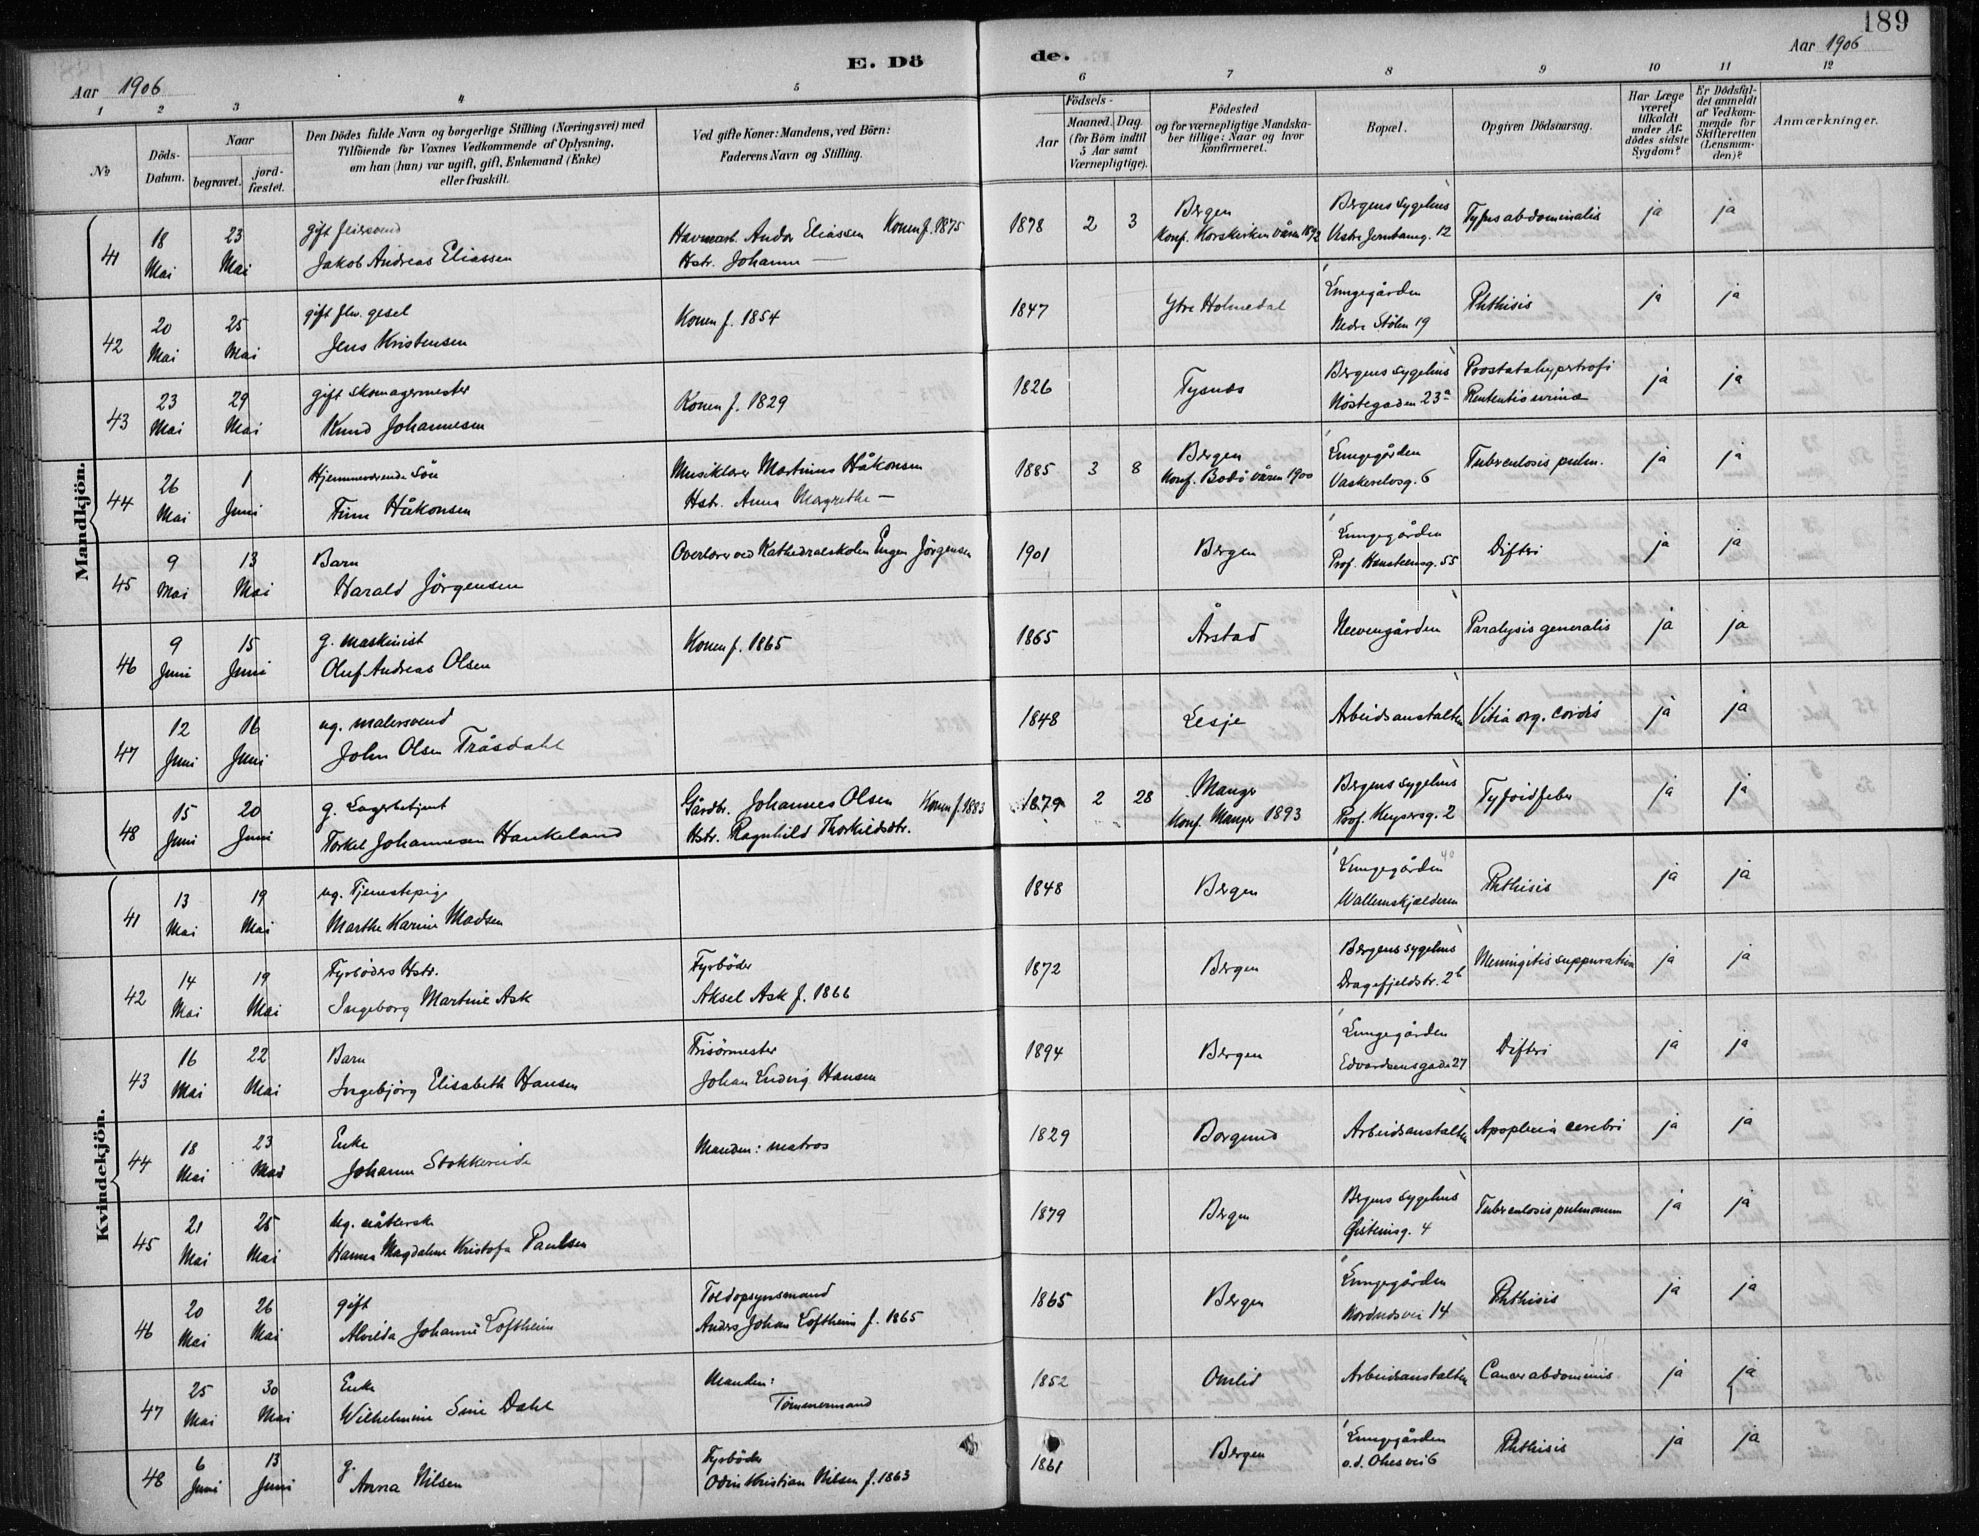 189
Aar 1906
E. Dö
de.
Aar 1906
1 2 3 4 5 6 7 8 9 10 11 12
No
Döds-Datum.
Naar
begravet.
jord-fæstet.
Den Dödes fulde Navn og borgerlige Stilling (Næringsvei) med
Tilföiende for Voxnes Vedkommende af Oplysning,
om han (hun) var ugift, gift, Enkemand (Enke)
eller fraskilt.
Ved gifte Koner: Mandens, ved Börn:
Faderens Navn og Stilling.
Födsels-
Aar
Maaned. Dag.
(for Börn indtil
5 Aar samt
Værnepligtige).
Födested
og for værnepligtige Mandska-
ber tillige: Naar og hvor
konfirmeret.
Bopæl.
Opgiven Dödsaarsag.
Har Læge
været
tilkaldt
under Af-
dödes sidste
Sygdom?
Er Dödsfal-
det anmeldt
af Vedkom-
mende for
Skifteretten
(Lensman-
den)?
Anmærkninger.
Mandkjön.
41 18 Mai 23 Mai
gift feiersvend
Jakob Andreas Eliassen
Havnearb. Andor Eliassen Konen f. 1875
Hstr. Johanne —
1878 2 3
Bergen
Konf. Korskirken våren 1892
Bergens sygehus
Vestre Jerntameg. 12
Tyfus abdominalis
ja ja
42 20 Mai 25 Mai
gift
Jens Kristensen
Konen f. 1854
1847
Ytre Holmedal
Lungegården
Nedre Stølen 19
Phthisis
ja ja
43 23 Mai 29 Mai
gift skomagermester
Knud Johannesen
Konen f. 1829
1826
Tysnæs
Bergens sygehus
Nöstegaden 23a
Prostatahypertrofi
Rententis urinæ
ja ja
44 26 Mai 1 Juni
Hjemmeværende Sön
Finn Håkonsen
Musiklærer Martinus Håkonsen
Hstr. Anna Margrethe —
1885 3 8
Bergen
Konf. Bodö våren 1900
Lungegården
Vaskerelvsg. 6
Tuberculosis pulm.
ja ja
45 9 Mai 13 Mai
Barn
Harald Jörgensen
Overlærer ved Kathedralskolen Eugen Jörgensen
1901
Bergen
Lungegården
Prof. Hansteensg. 55
Difteri
ja ja
46 9 Juni 15 Juni
g. maskinist
Oluf Andreas Olsen
Konen f. 1865
1865
Årstad
Neevengården
Paralysis generalis
ja ja
47 12 Juni 16 Juni
ug. malersvend
John Olsen Tråsdahl
1848
Lesje
Arbeidsanstalten
Vitia org. cordis
ja ja
48 15 Juni 20 Juni
g. Lagerbetjent
Torkel Johannesen Haukeland
Gårdbr. Johannes Olsen Konen f. 1883
Hstr. Ragnhild Thorkildsdtr.
1879 2 28
Manger
Konf. Manger 1893
Bergens sygehus
Prof. Keysersg. 2
Tyfoidfeber
ja ja
Kvindekjön.
41 13 Mai 19 Mai
ug. Tjenestepige
Marthe Karine Madsen
1848
Bergen
Lungegården
Wallemskjælderen
Phthisis
ja ja
42 14 Mai 19 Mai
Fyrbøders Hstr.
Ingeborg Martine Ask
Fyrbøder
Aksel Ask f. 1866
1872
Bergen
Bergens sygehus
Dragefjeldstr. 2b
Meningitis suppurativa
ja ja
43 16 Mai 22 Mai
Barn
Ingebjörg Elisabeth Hansen
Frisörmester
Johan Ludvig Hansen
1894
Bergen
Lungegården
Edvardsensgade 27
Difteri
ja ja
44 18 Mai 23 Mai
Enke
Johanne Stokkereide
Manden: matros
1829
Borgund
Arbeidsanstalten
Apoplexia cerebri
ja ja
45 21 Mai 25 Mai
Ug. nåtlerske
Hanna Magdalene Kristofa Paulsen
1879
Bergen
Bergens sygehus
Øisteinsg. 4
Tuberculosis pulmonum
ja ja
46 20 Mai 26 Mai
gift
Alvilda Johanne Loftheim
Toldopsynsmand
Anders Johan Loftheim f. 1865
1865
Bergen
Lungegården
Nordnesvei 14
Phthisis
ja ja
47 25 Mai 30 Mai
Enke
Wilhelmine Sine Dahl
Manden:
Tømmermand
1852
Omlid
Arbeidsanstalten
Cancer abdominis
ja ja
48 6 Juni 13 Juni
g.
Anna Nilsen
Fyrbøder
Odin Kristian Nilsen f. 1863
1861
Bergen
Lungegården
o.d. Ohesvei 6
Phthisis
ja ja